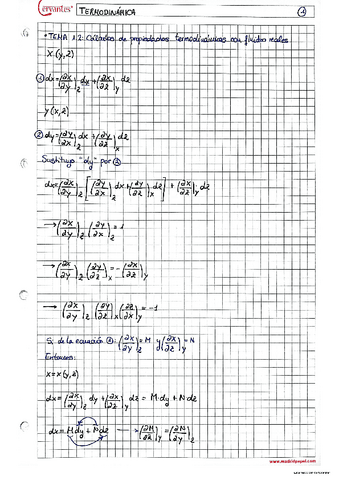 cervantes TERMODINÁMICA 1
• TEMA 12: Cálculos de propiedades termodinámicas con fluidos reales
x(y,z)
① dx = (∂x/∂y)_z dy + (∂x/∂z)_y dz
y(x,z)
② dy = (∂y/∂x)_z dx + (∂y/∂z)_x dz
Sustituyo "dy" por ②
dx = (∂x/∂y)_z [(∂y/∂x)_z dx + (∂y/∂z)_x dz] + (∂x/∂z)_y dz
→ (∂x/∂y)_z (∂y/∂x)_z = 1
→ (∂x/∂y)_z (∂y/∂z)_x = -(∂x/∂z)_y
→ (∂x/∂y)_z (∂y/∂z)_x (∂z/∂x)_y = -1
Si de la ecuación ①: (∂x/∂y)_z = M y (∂x/∂z)_y = N
Entonces:
x = x(y,z)
dx = (∂x/∂y)_z dy + (∂x/∂z)_y dz = M·dy + N·dz
dx = M dy + N dz → (∂M/∂z)_y = (∂N/∂y)_z
www.madridpapel.com